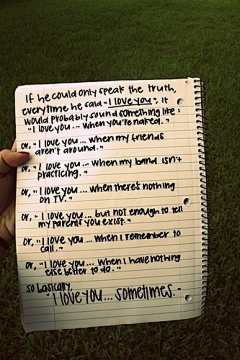 If he could only speak the truth,
everytime he said "I love you", it
would probably sound something like:
"I love you... when you're naked."
or, "I love you... when my friends
aren't around."
or, "I love you... when my band isn't
practicing."
or, "I love you... when there's nothing
on TV."
or, "I love you... but not enough to tell
my parents you exist."
or, "I love you... when I remember to
call."
or, "I love you... when I have nothing
else better to do."
so basically,
"I love you... sometimes."